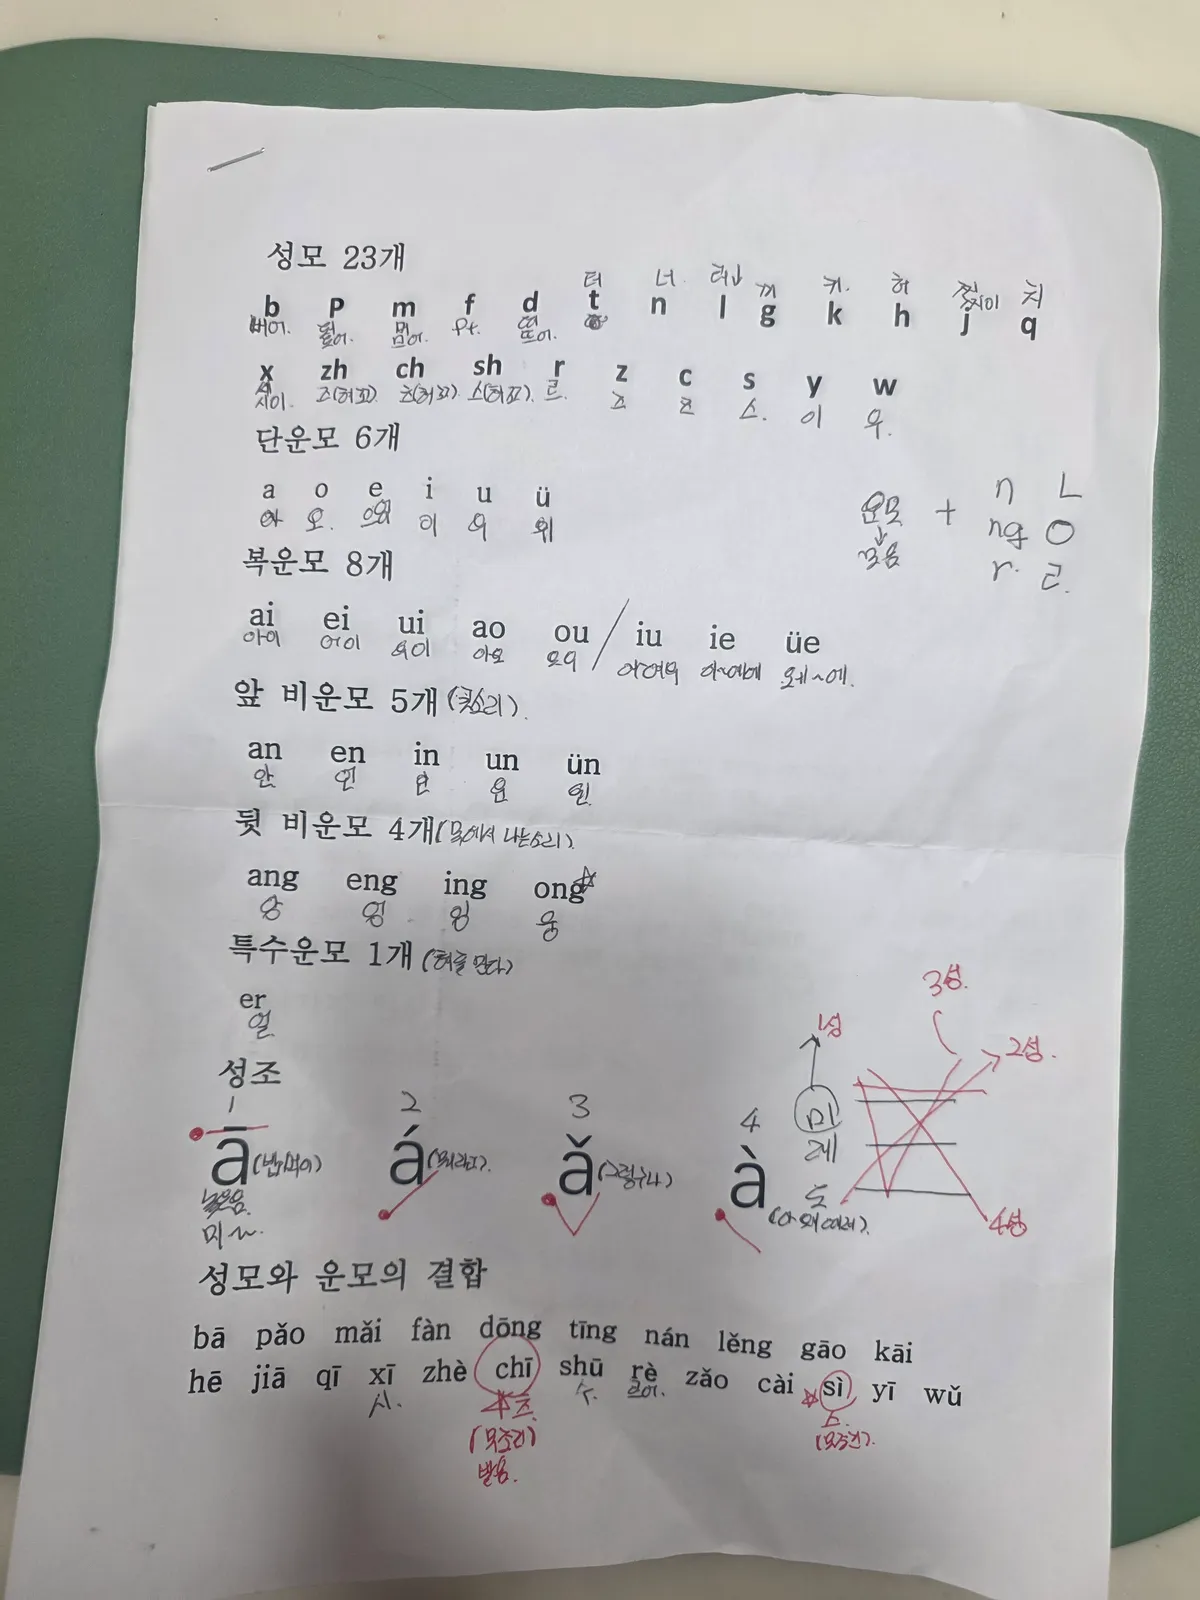 성모 23개
터 너 러 ㄲ 커. 허 찌이 치
b p m f d t n l g k h j q
뻐어. 뭐어. fㅓ. 뜨어.
x zh ch sh r z c s y w
시이. 즈(혀꼬) 츠(혀꼬) 스(혀꼬). 르. 즈 츠 스. 이 우.
단운모 6개
a o e i u ü
아 오. 으어 이 우 위
운모 + n ㄴ
ng ㅇ
r. ㄹ.
↓
모음
복운모 8개
ai ei ui ao ou / iu ie üe
아이 어이 우이 아오 오우 이~예에 위~에.
앞 비운모 5개 (콧소리).
an en in un ün
안 언 인 운 윈
뒷 비운모 4개 (목에서 나는소리).
ang eng ing ong☆
앙 엉 잉 옹
특수운모 1개 (혀를 만다)
er
얼
성조
1 2 3 4
ā á ǎ à
(뭐라고). (그렇구나) (아 왜 때려).
높은음.
미~.
1성 3성. 2성. 4성
미
레
도
성모와 운모의 결합
bā pǎo mǎi fàn dōng tīng nán lěng gāo kāi
hē jiā qī xī zhè chī shū rè zǎo cài ☆ sì yī wǔ
시. ☆츠. 수. 르어. 스.
(무조건) (무조건).
발음.